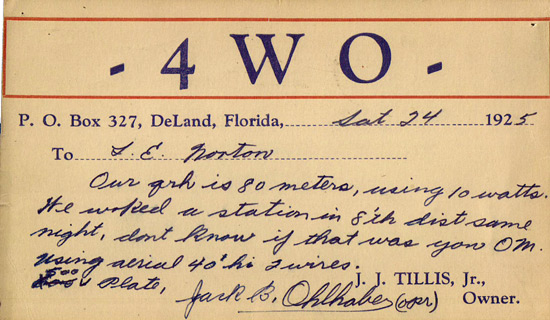 - 4 W O -
P. O. Box 327, DeLand, Florida, Sat 24 1925
To L. E. Norton
Our qrh is 80 meters, using 10 watts.
We woked a station in 8'th dist same
night, dont know if that was you OM.
Using aerial 40' hi 2 wires.
500 v Plate,
J. J. TILLIS, Jr.,
Jack B. Ohlhaber (opr) Owner.